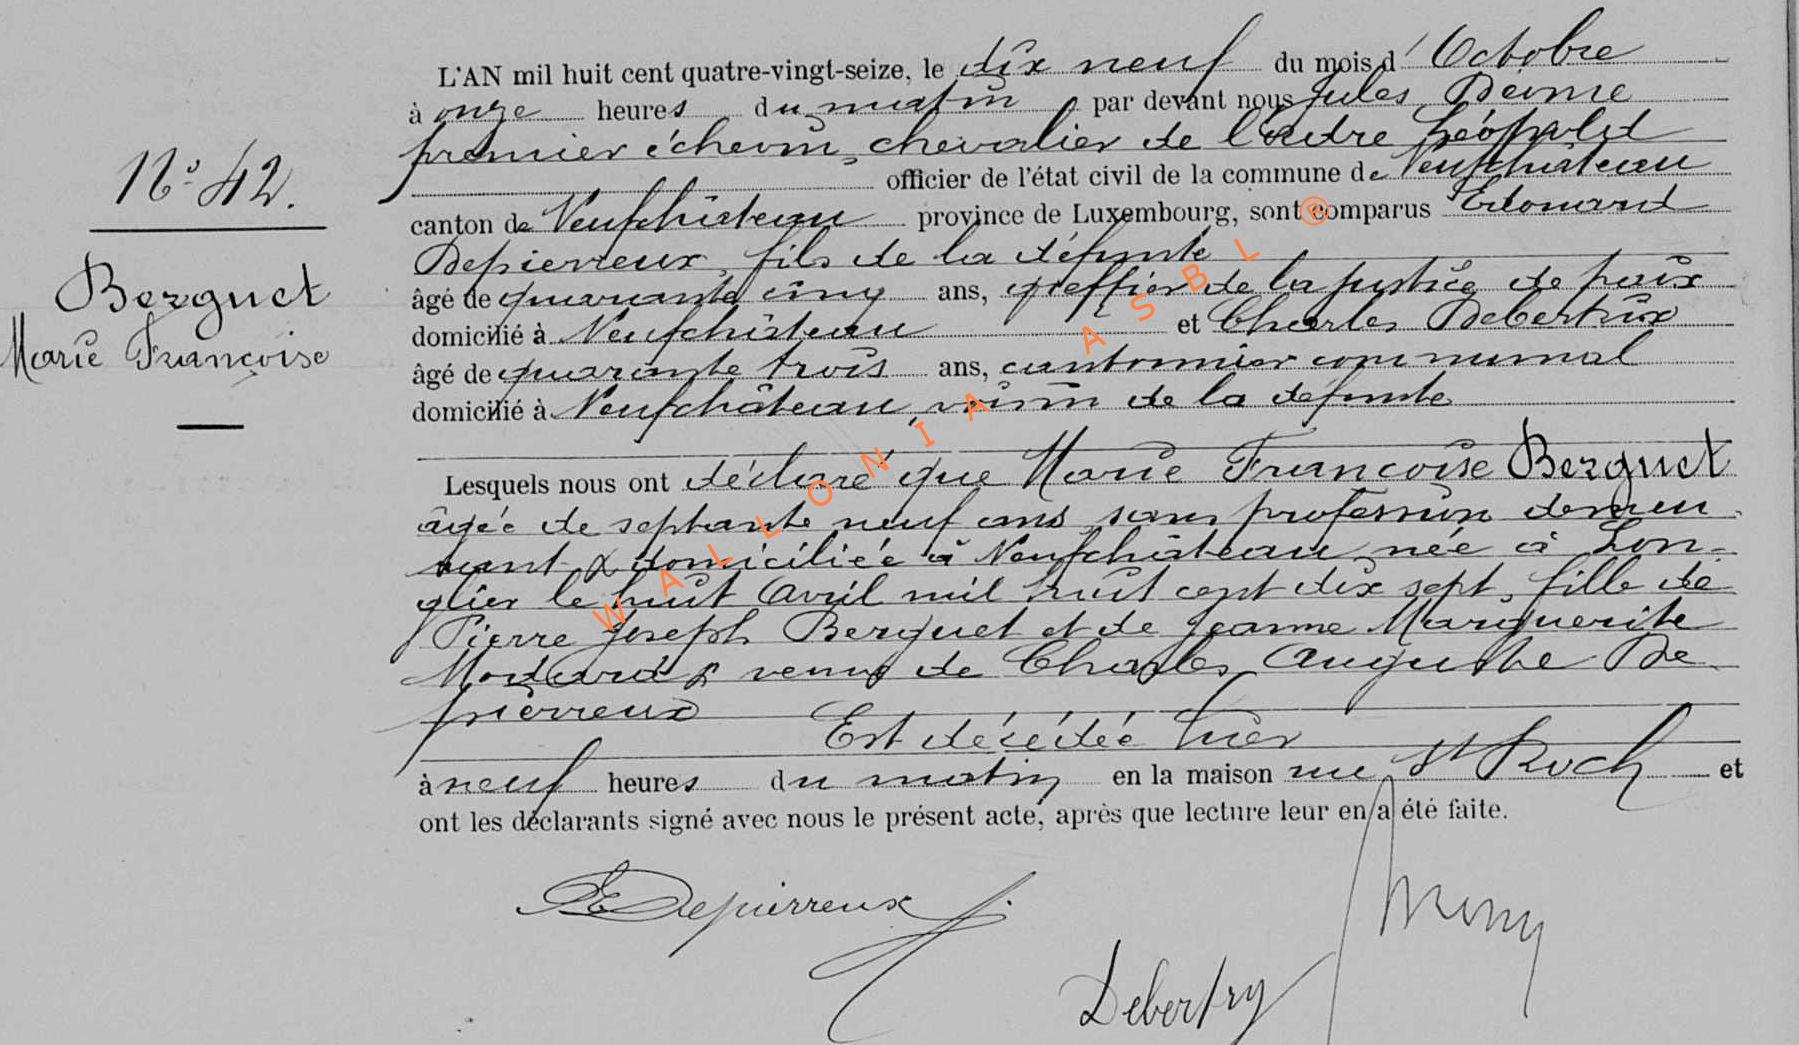 L'AN mil huit cent quatre-vingt-seize, le dix neuf du mois d'Octobre
à onze heures du matin par devant nous Jules
premier échevin, chevalier de l'ordre Léopold
officier de l'état civil de la commune de Neufchâteau
canton de Neufchâteau province de Luxembourg, sont comparus Edouard
Depierreux, fils de la défunte
âgé de quarante cinq ans, greffier de la justice de paix
domicilié à Neufchâteau et Charles
âgé de quarante trois ans, cantonnier communal
domicilié à Neufchâteau, voisin de la défunte
N° 42.
Berguet
Marie Françoise
Lesquels nous ont déclaré que Marie Françoise Berguet
âgée de septante neuf ans sans profession demeu
rant & domiciliée à Neufchâteau, née à Lon-
glier le huit Avril mil huit cent dix sept, fille de
Pierre Joseph Berguet et de Jeanne Marguerite
veuve de Charles Auguste De
pierreux Est décédée hier
à neuf heures du matin en la maison rue St Roch et
ont les déclarants signé avec nous le présent acte, après que lecture leur en a été faite.
EDepierreux
WALLONIA ASBL ®